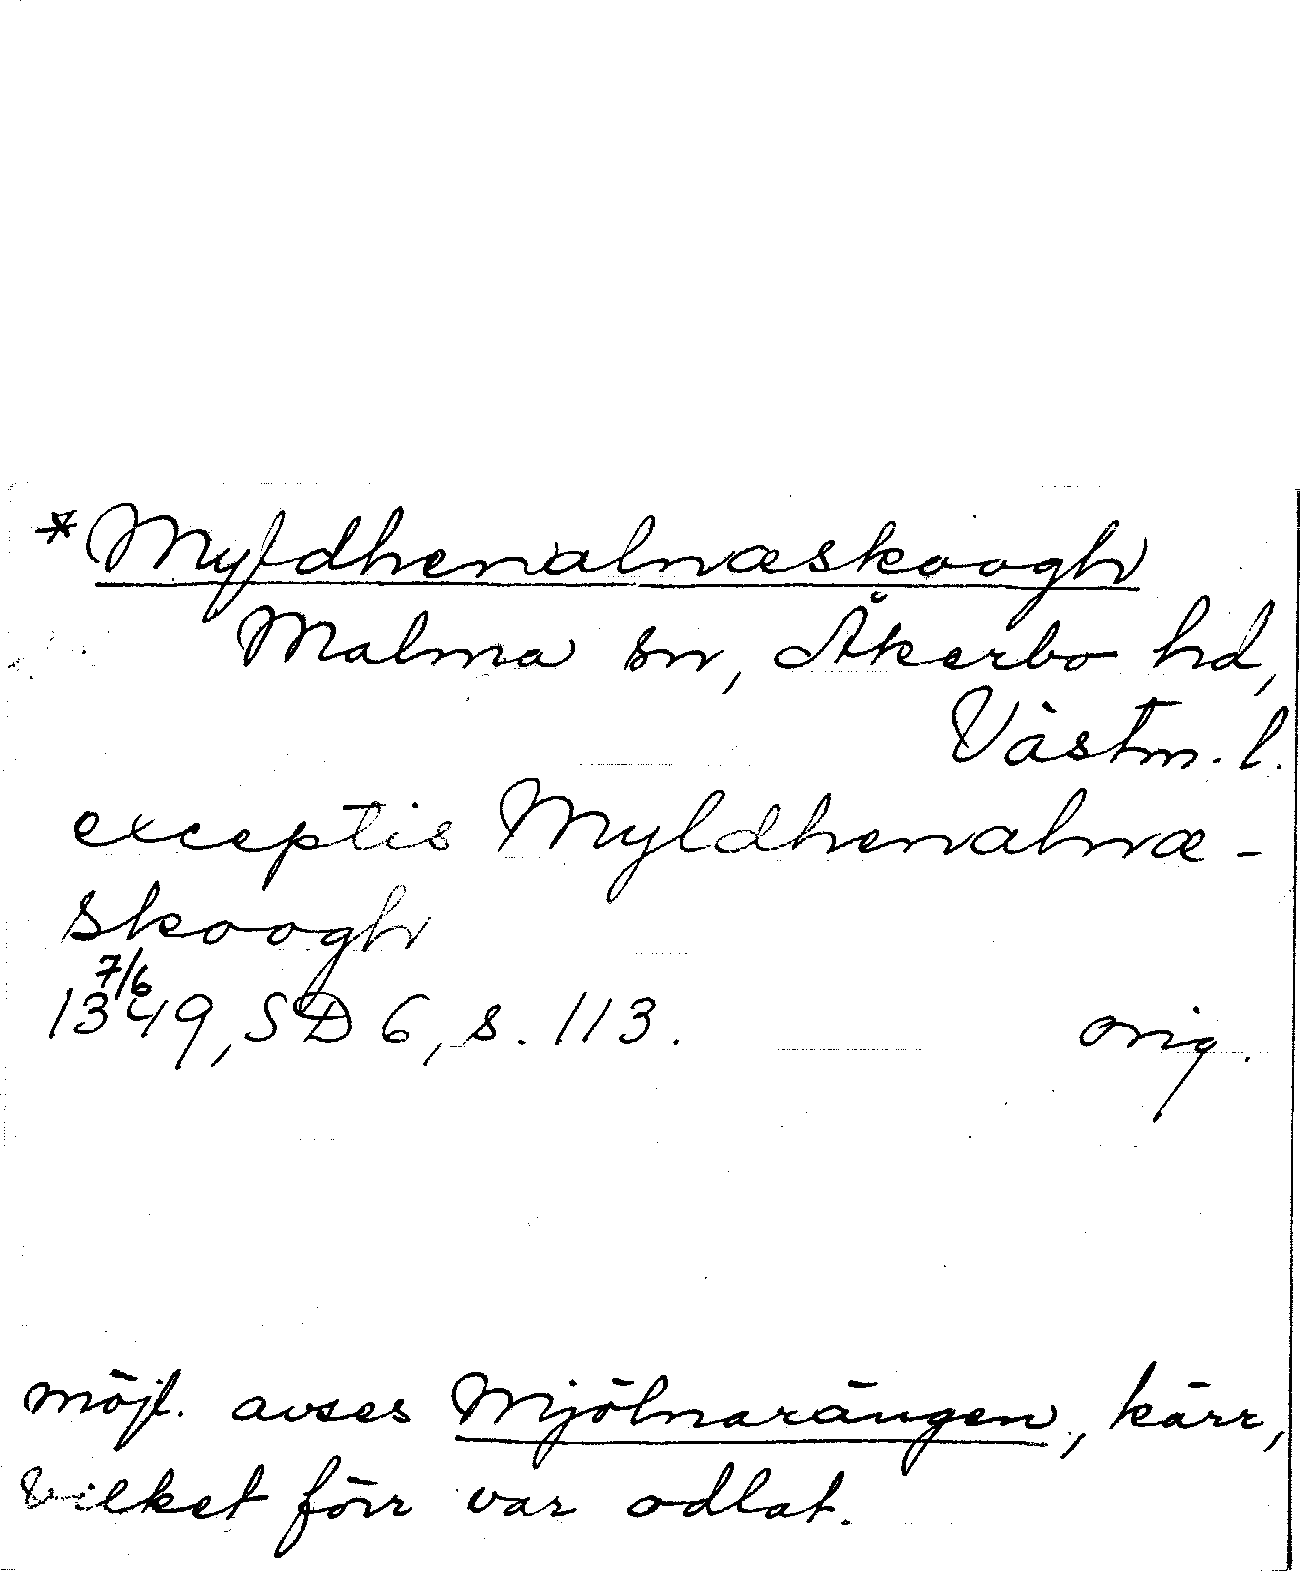 *Myldhenalnæskoogh
Malma sn, Åkerbo hd,
Västm. l.
exceptis Myldhenalnæ-
skoogh
7/6
1349, SD 6, s. 113. orig.
möjl. avses Mjölnarängen, kärr,
vilket förr var odlat.